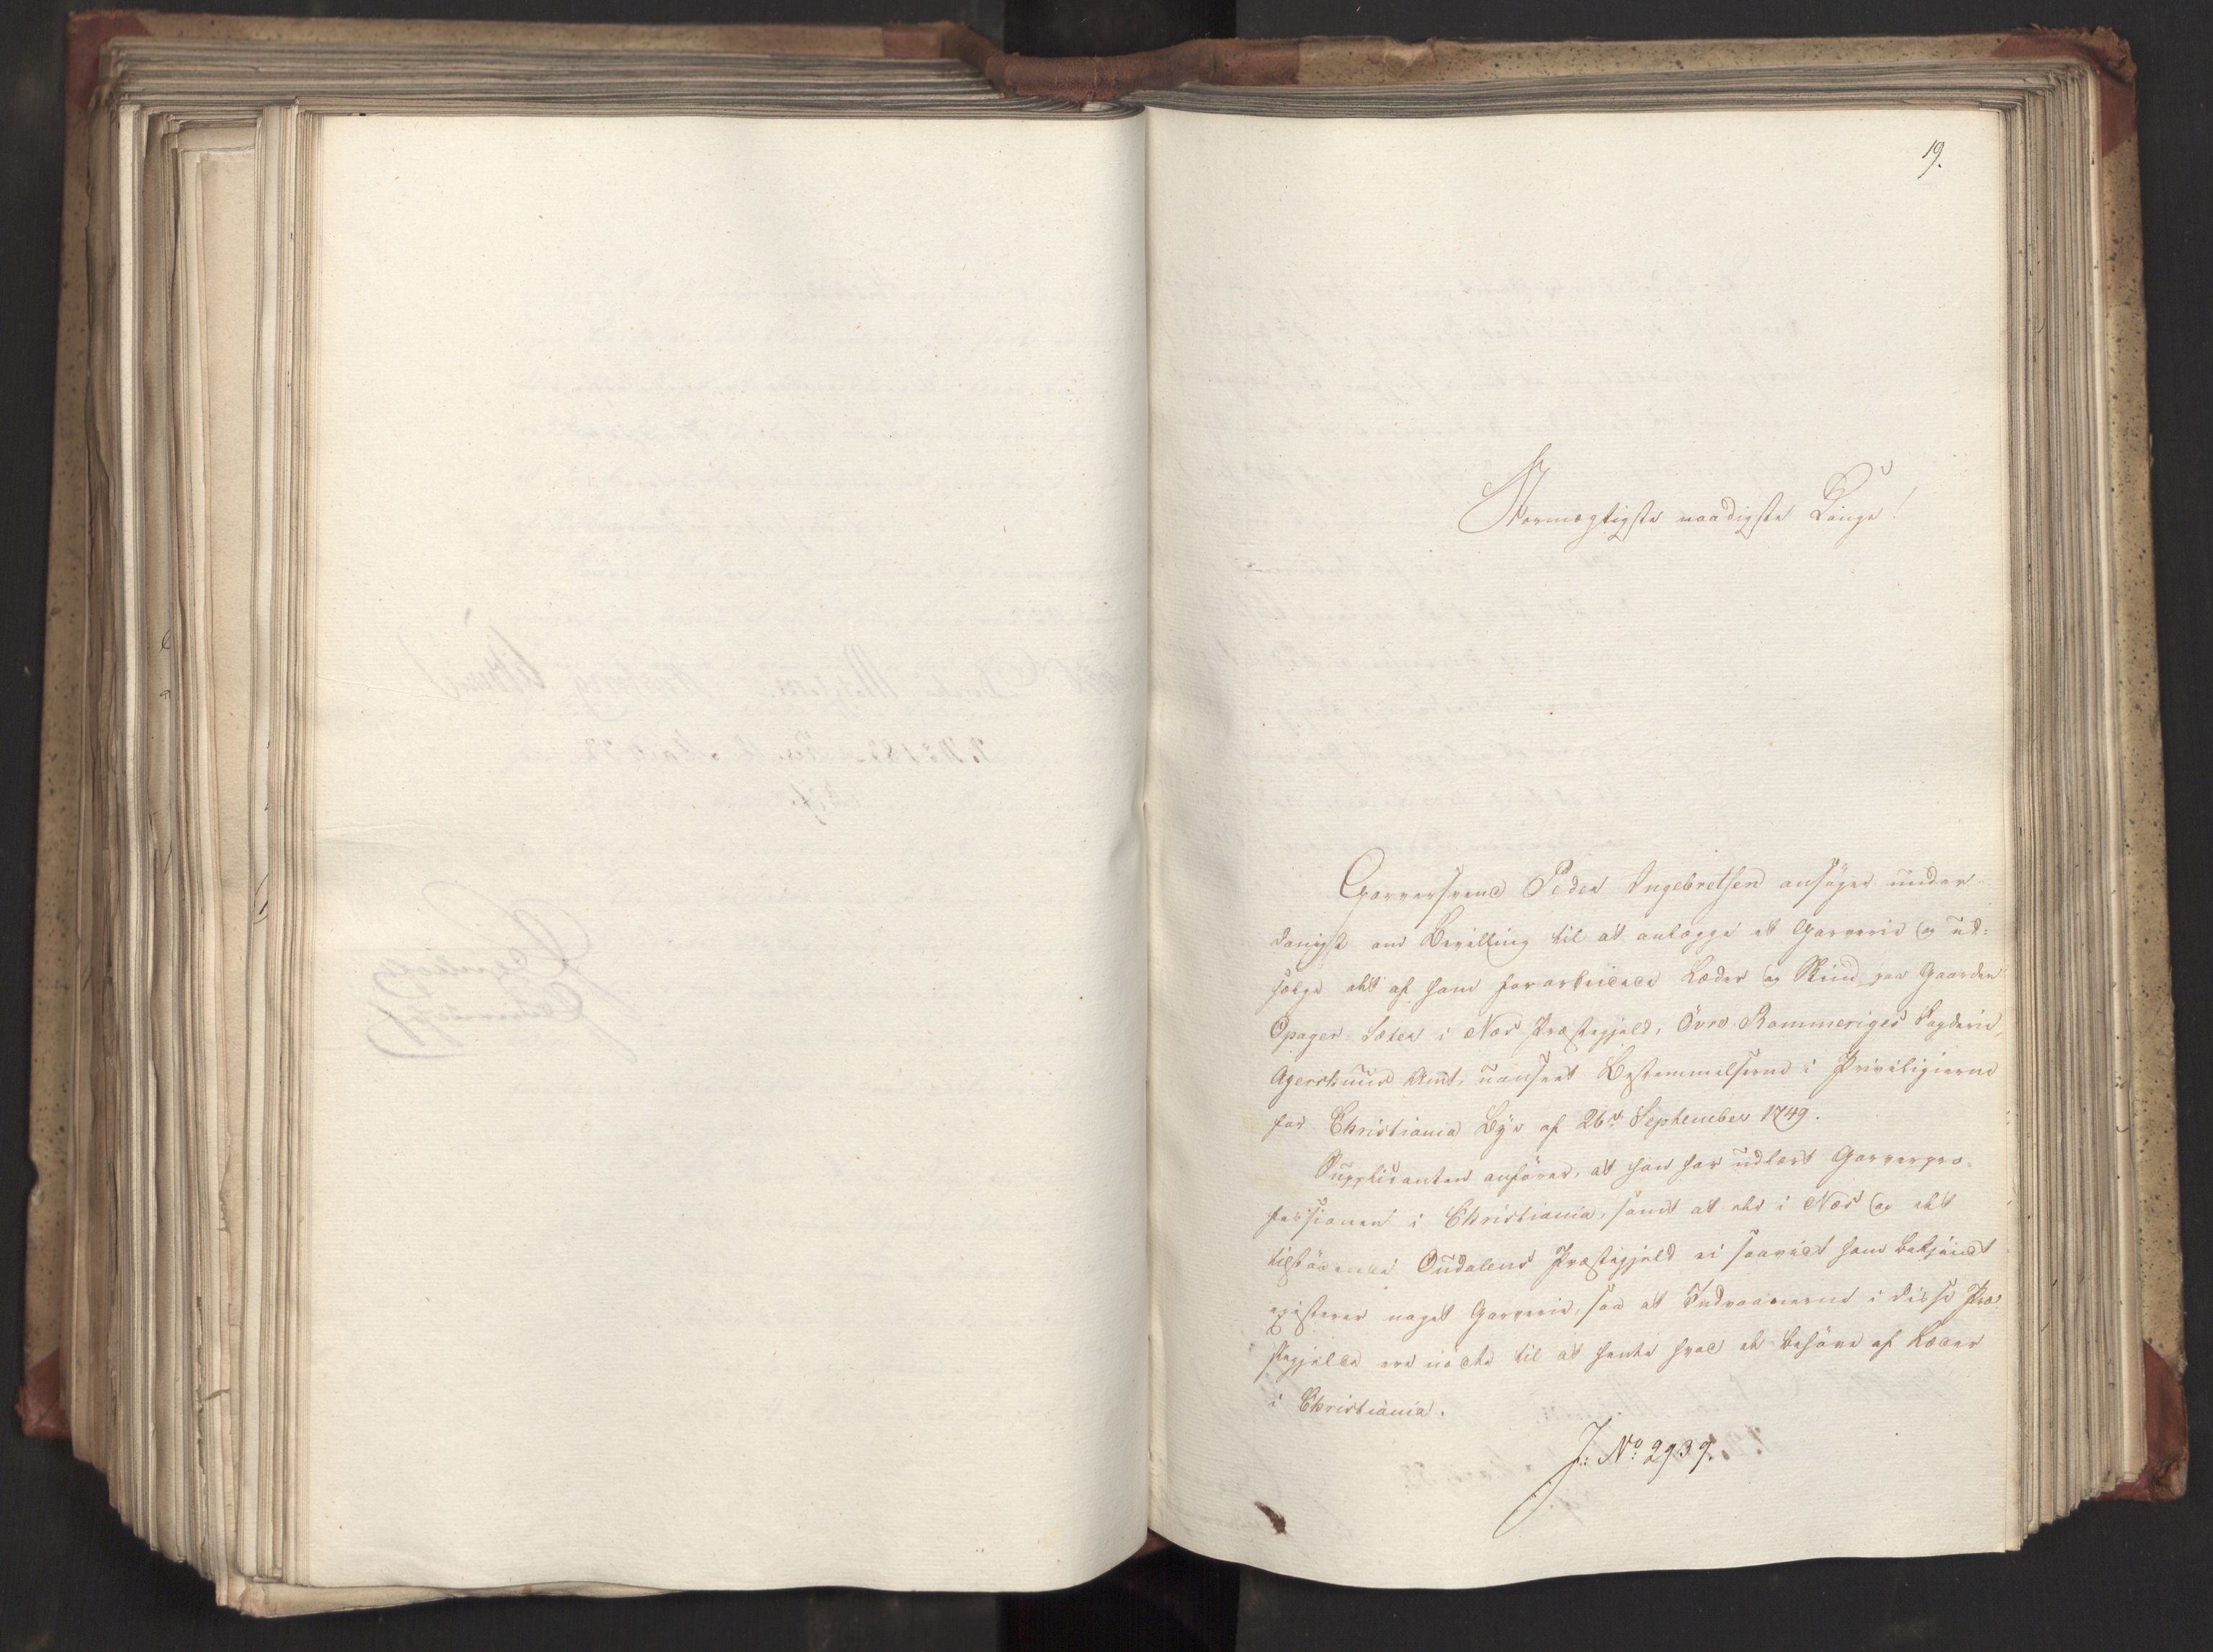 19.
Stormægtigste naadigste Konge!
Garversvend Peder Ingebretsen ansøger under
danigst om Bevilling til at anlægge et Garverie og ud=
sælge det af ham forarbeidede Læder og Skind paa Gaarden
Opager Sæter i Næs Præstegjeld, Övre Rommeriges Fogderie,
Agershuus Amt, uanseet Bestemmelserne i Priviligierne
for Christiania Bye af 26de September 1749.
Supplicanten anförer, at han har udlært Garverpro-
fessionen i Christiania, samt at der i Næs og det
tilstödende Oudalens Præstegjeld ei saavidt ham bekjendt
existerer noget Garverie, saa at Indvaanerne i disse Præ
stegjelde ere nödte til at hente hvad de behöve af Læder
i Christiania.
J: No: 2939.